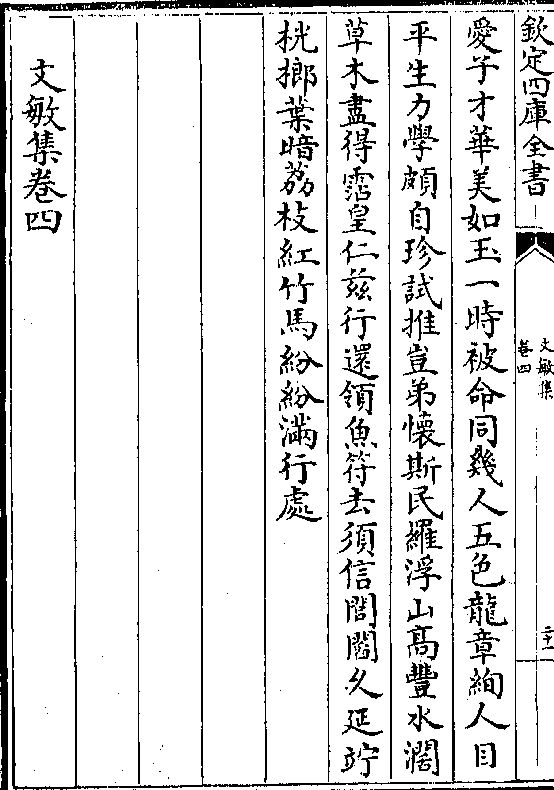 欽定四庫全書
文敏集
卷四
二十一
愛子才華美如玉一時被命同幾人五色龍章絢人目
平生力學頗自珍試推豈弟懷斯民羅浮山髙豐水濶
草木盡得霑皇仁兹行還領魚符去須信閭閻久延竚
桄榔葉暗荔枝紅竹馬紛紛滿行處
文敏集卷四